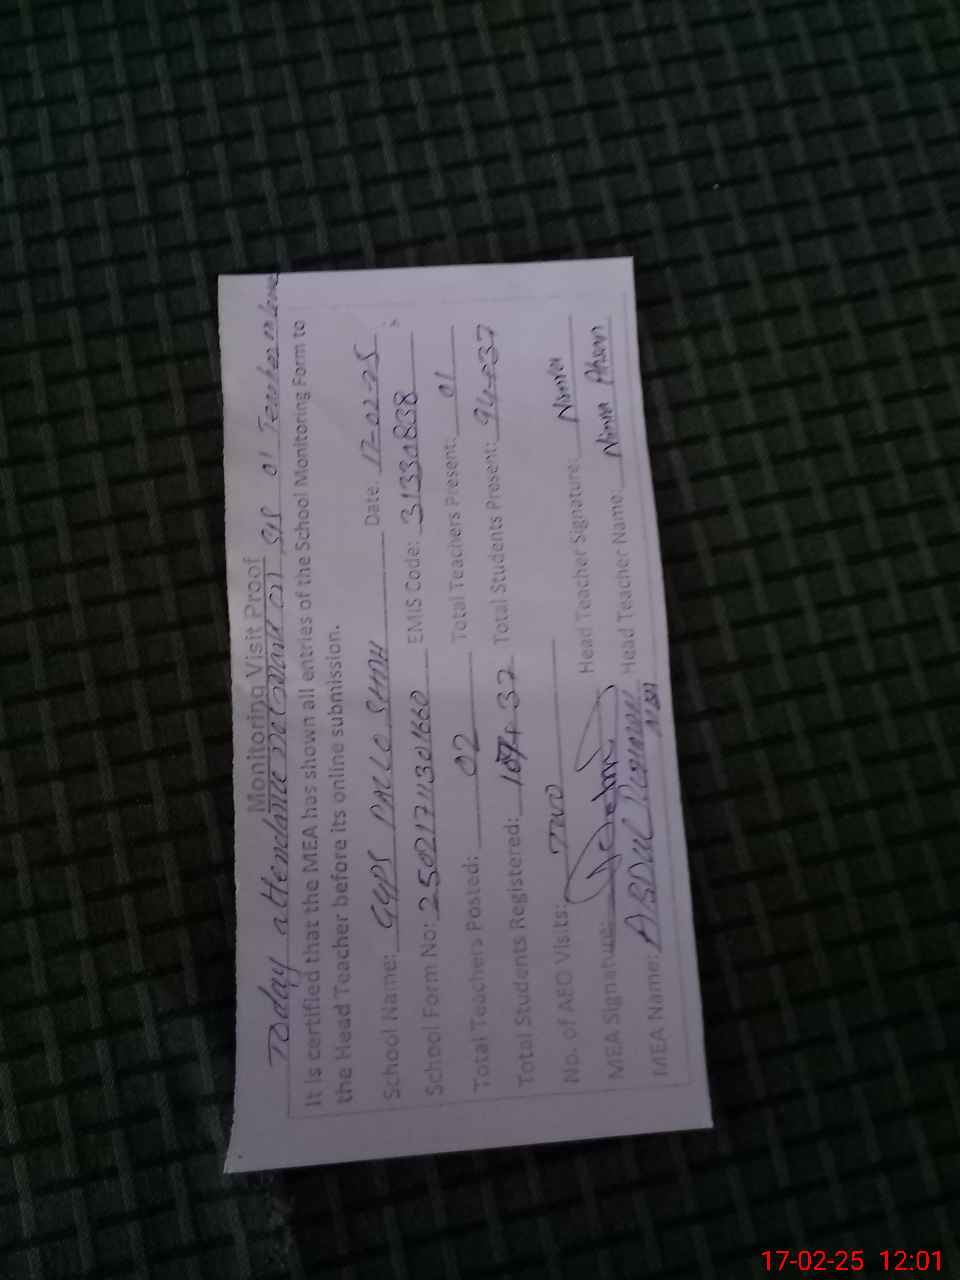 Monitoring Visit Proof
Today attendance 01
It is certified that the MEA has shown all entries of the School Monitoring Form to
the Head Teacher before its online submission.
School Name: GGPS Date: 17-02-25
School Form No: EMIS Code: 31330838
Total Teachers Posted: 02 Total Teachers Present: 01
Total Students Registered: + 37 Total Students Present: 94+37
No. of AEO Visits: Two
MEA Signature: Head Teacher Signature:
MEA Name: ABDUL Head Teacher Name:
17-02-25 12:01